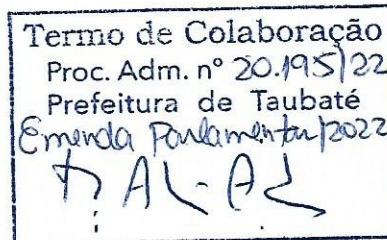 Termo de Colaboração
Proc. Adm. nº 20.195/22
Prefeitura de Taubaté
Emenda Parlamentar/2022